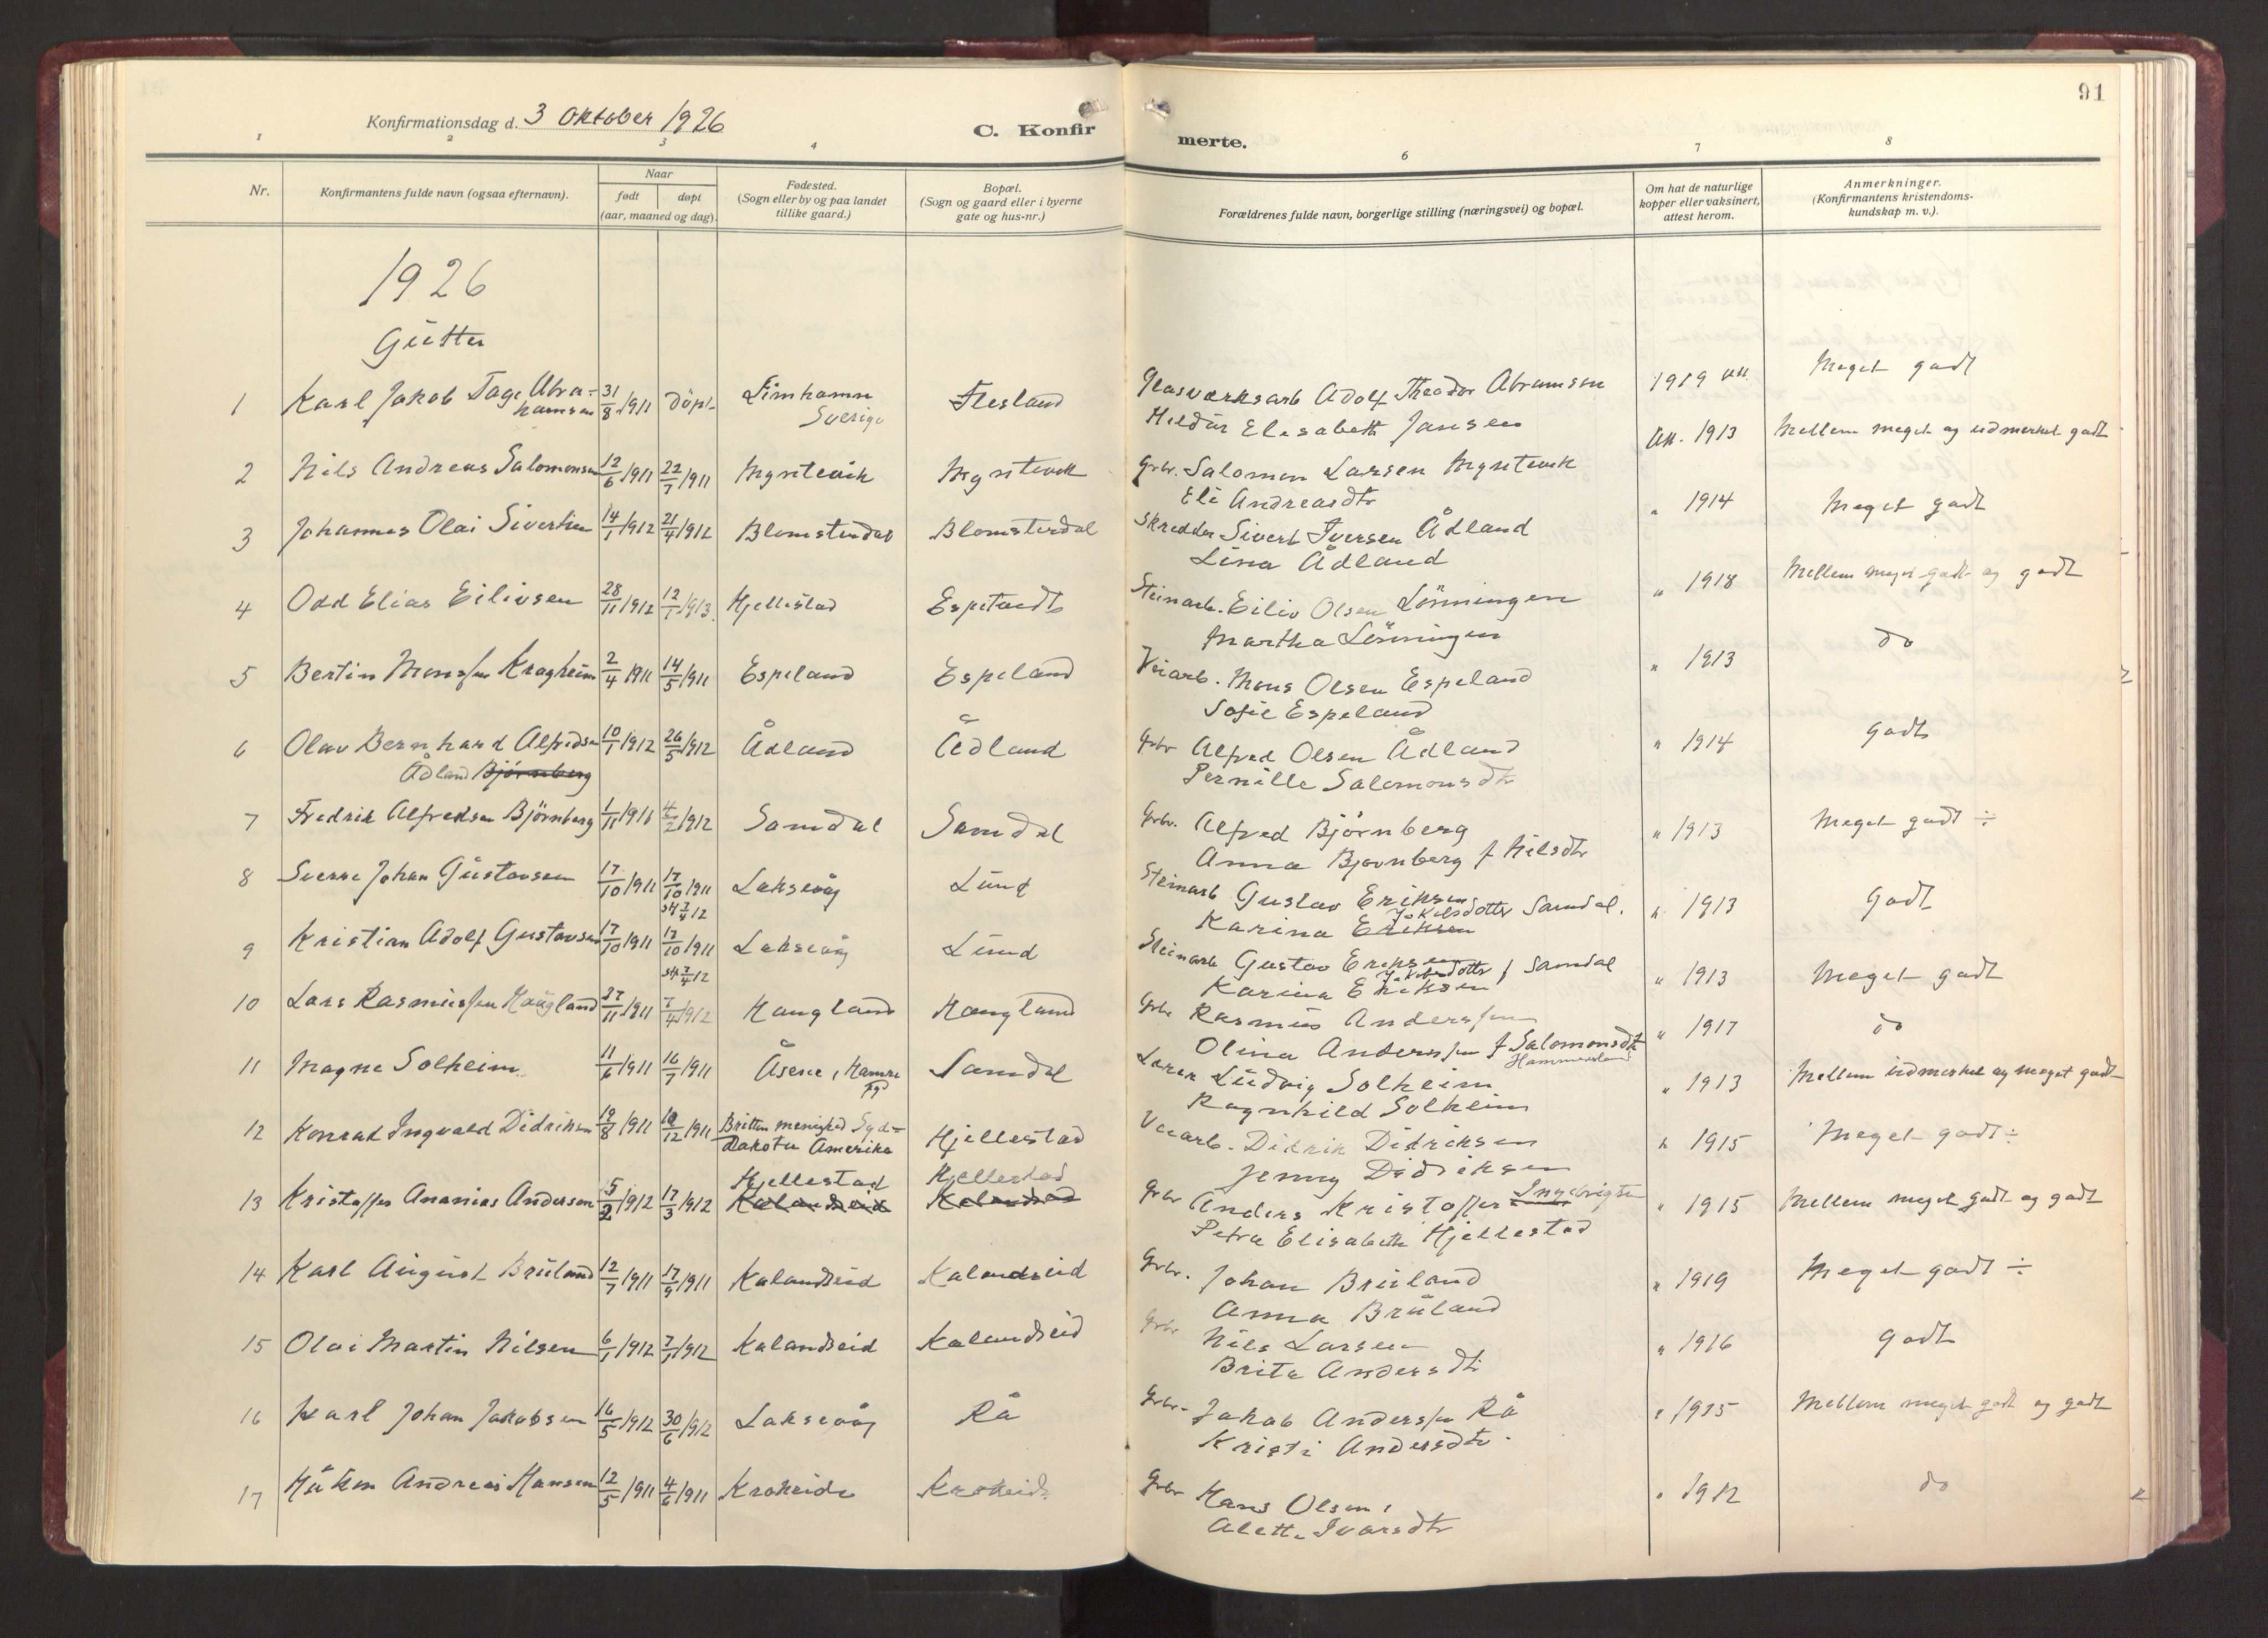 91
Konfirmationsdag d. 3 Oktober 1926
C. Konfirmerte.
1 2 3 4 6 7 8
Nr.
Konfirmantens fulde navn (ogsaa efternavn).
Naar
født døpt
(aar, maaned og dag).
Fødested.
(Sogn eller by og paa landet
tillike gaard.)
Bopæl.
(Sogn og gaard eller i byerne
gate og hus-nr.)
Forældrenes fulde navn, borgerlige stilling (næringsvei) og bopæl.
Om hat de naturlige
kopper eller vaksinert,
attest herom.
Anmerkninger.
(Konfirmantens kristendoms-
kundskap m. v.).
1926
Gutter
1 Karl Jakob Tage Abra-
hamsen 31/8 1911 döpt Limhamn
Sverige Flesland Glasværksarb Adolf Theodor Abramsen
Elisabeth Jansen 1919 att. Meget godt
2 Nils Andreas Salomonsen 12/6 1911 22/7 1911 Myntevik Myntevik Grbr. Salomon Larsen Myntevik
Eli Andreasdtr Att. 1913 Mellem meget og udmerket godt
3 Johannes Olai Sivertsen 14/1 1912 21/4 1912 Blomsterdal Blomsterdal Skredder Sivert Iversen Ådland
Lina Ådland " 1914 Meget godt
4 Odd Elias Eilivsen 28/11 1912 12/1 1913 Hjellestad Espetvedt Steinarb. Eiliv Olsen Lönningen
Martha Lönningen " 1918 Mellem meget godt og godt
5 Bertin Monssen Kragheim 2/4 1911 14/5 1911 Espeland Espeland Veiarb. Mons Olsen Espeland
Sofie Espeland " 1913 do
6 Olav Bernhard Alfredsen
Ådland Bjørnberg 10/1 1912 26/5 1912 Ådland Ådland Grbr Alfred Olsen Ådland
Pernille Salomonsdtr " 1914 Godt
7 Fredrik Alfredsen Björnberg 1/11 1911 4/2 1912 Samdal Samdal Grbr. Alfred Björnberg
Anna Bjørnberg f Nilsdtr " 1913 Meget godt ÷
8 Sverre Johan Gustavsen 17/10 1911 17/10 1911
st 7/4 12 Laksevåg Lund Steinarb Gustav Eriksen
Karina Eriksen Jokelsdotter Samdal. " 1913 Godt
9 Kristian Adolf Gustavsen 17/10 1911 17/10 1911
st 7/4 12 Laksevåg Lund Steinarb Gustav Eriksen
Karina Eriksen Jokelsdotter f Samdal " 1913 Meget godt
10 Lars Rasmussen Haugland 27/11 1911 7/4 1912 Haugland Haugland Grbr Rasmus Anderssen
Olina Anderssen f Salomonsdtr
Hammersland " 1917 do
11 Magne Solheim 11/6 1911 16/7 1911 Åsene, Hamre
Pgd Samdal Lærer Ludvig Solheim
Ragnhild Solheim " 1913 Mellem udmerket og meget godt
12 Konrad Ingvald Didriksen 19/8 1911 10/12 1911 Britton menighed Syd-
Dakota Amerika Hjellestad Veiarb. Didrik Didriksen
Jenny Didriksen " 1915 Meget godt ÷
13 Kristoffer Ananias Andersen 5/2 1912 17/3 1912 Hjellestad
Kalandseid Hjellestad
Kalandseid Grbr Anders Kristoffer Ingebrigtsen
Petra Elisabeth Hjellestad " 1915 Mellem meget godt og godt
14 Karl August Bruland 12/7 1911 17/9 1911 Kalandseid Kalandseid Grbr. Johan Bruland
Anna Bruland " 1919 Meget godt ÷
15 Olai Martin Nilsen 6/1 1912 7/1 1912 Kalandseid Kalandseid Grbr Nils Larsen
Brita Andersdtr " 1916 Godt
16 Karl Johan Jakobsen 16/5 1912 30/6 1912 Laksevåg Rå Grbr. Jakob Anderssen Rå
Kristi Andersdtr. " 1915 Mellem meget godt og godt
17 Håkon Andreas Hansen 12/5 1911 4/6 1911 Krokeide Krokeide Grbr Hans Olsen,
Alette Ivarsdtr " 1912 do